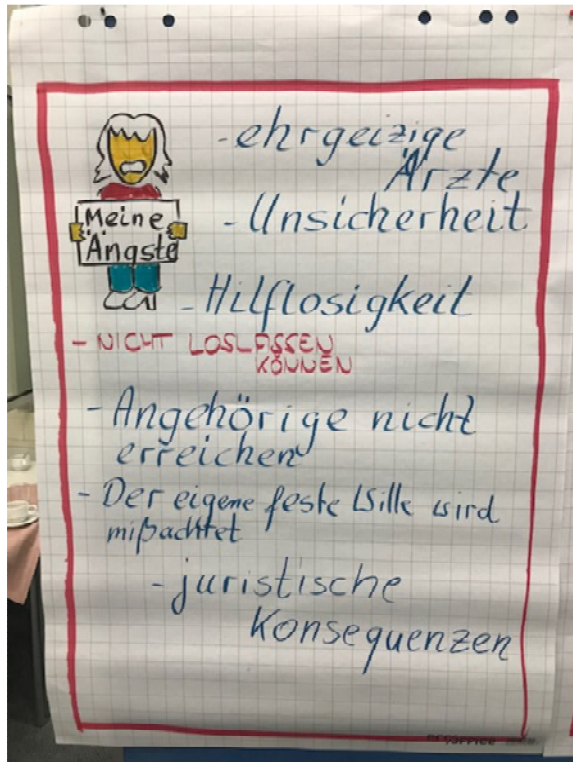 Meine
Ängste
- ehrgeizige
Ärzte
- Unsicherheit
- Hilflosigkeit
- NICHT LOSLASSEN
KÖNNEN
- Angehörige nicht
erreichen
- Der eigene feste Wille wird
mißachtet
- juristische
Konsequenzen